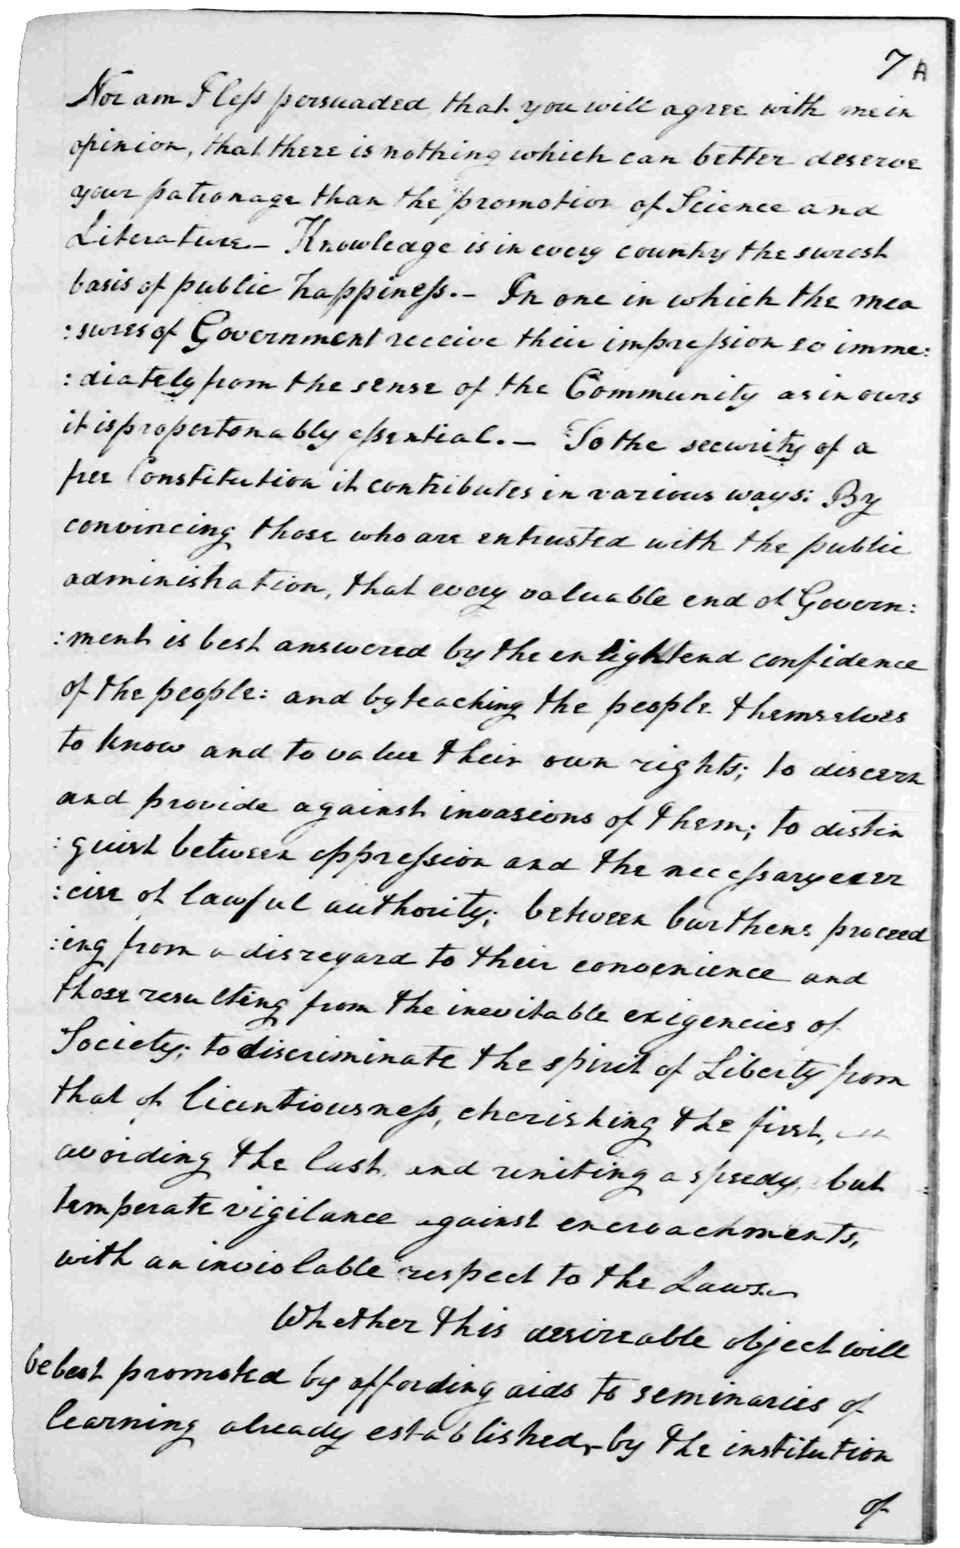 7 A
Nor am I less persuaded, that you will agree with me in
opinion, that there is nothing which can better deserve
your patronage than the promotion of Science and
Literature. – Knowledge is in every country the surest
basis of public happiness. – In one in which the mea
:sures of Government receive their impression so imme:
:diately from the sense of the Community as in ours
it is propertonably essential. – To the security of a
free Constitution it contributes in various ways: By
convincing those who are entrusted with the public
administration, that every valuable end of Govern:
:ment is best answered by the enlightend confidence
of the people: and by teaching the people themselves
to know and to value their own rights; to discern
and provide against invasions of them; to distin
:guish between oppression and the necessary exer
:cise of lawful authority; between burthens proceed
:ing from a disregard to their convenience and
those resulting from the inevitable exigencies of
Society; to discriminate the spirit of Liberty from
that of licentiousness, cherishing the first,
avoiding the last, and uniting a speedy, but
temperate vigilance against encroachments,
with an inviolable respect to the Laws. –
Whether this desireable object will
be best promoted by affording aids to seminaries of
learning already established, – by the institution
of